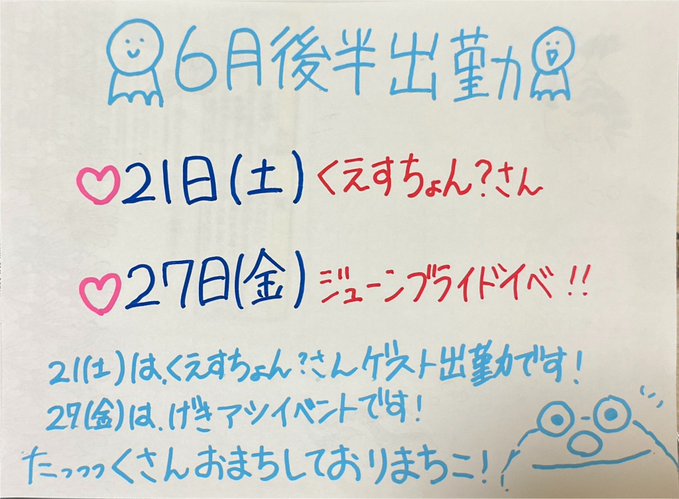 6月後半出勤
♡21日(土)くえすちょん?さん
♡27日(金)ジューンブライドイベ!!
21(土)は、くえすちょん?さんゲスト出勤です!
27(金)は、げきアツイベントです!
たっっっくさんおまちしておりまちこ!